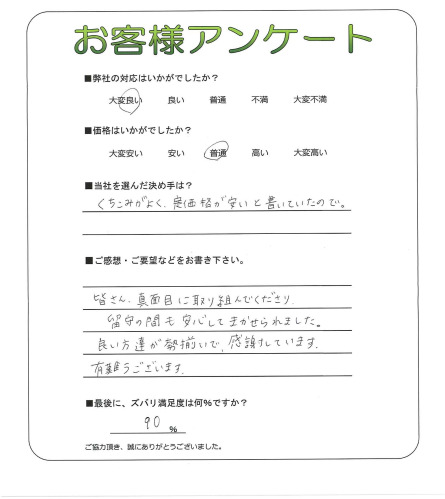 お客様アンケート
■弊社の対応はいかがでしたか?
大変良い 良い 普通 不満 大変不満
■価格はいかがでしたか?
大変安い 安い 普通 高い 大変高い
■当社を選んだ決め手は?
くちこみがよく、価格が安いと書いていたので。
■ご感想・ご要望などをお書き下さい。
皆さん、真面目に取り組んでくださり
留守の間も安心してまかせられました。
良い方達が勢揃いで、感謝しています。
有難うございます。
■最後に、ズバリ満足度は何%ですか?
90 %
ご協力頂き、誠にありがとうございました。